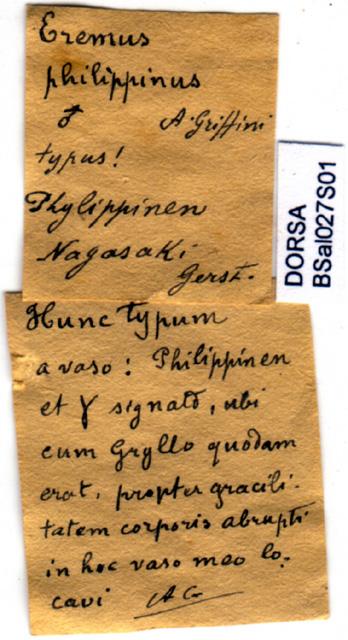 Eremus
philippinus
♂ A. Griffini
typus!
Phylippinen
Nagasaki
Gerst.
DORSA
BSal027S01
Hunc typum
a vaso: Philippinen
et γ signato, ubi
cum Gryllo quodam
erat, propter gracili-
tatem corporis abrupti
in hoc vaso meo lo-
cavi AG